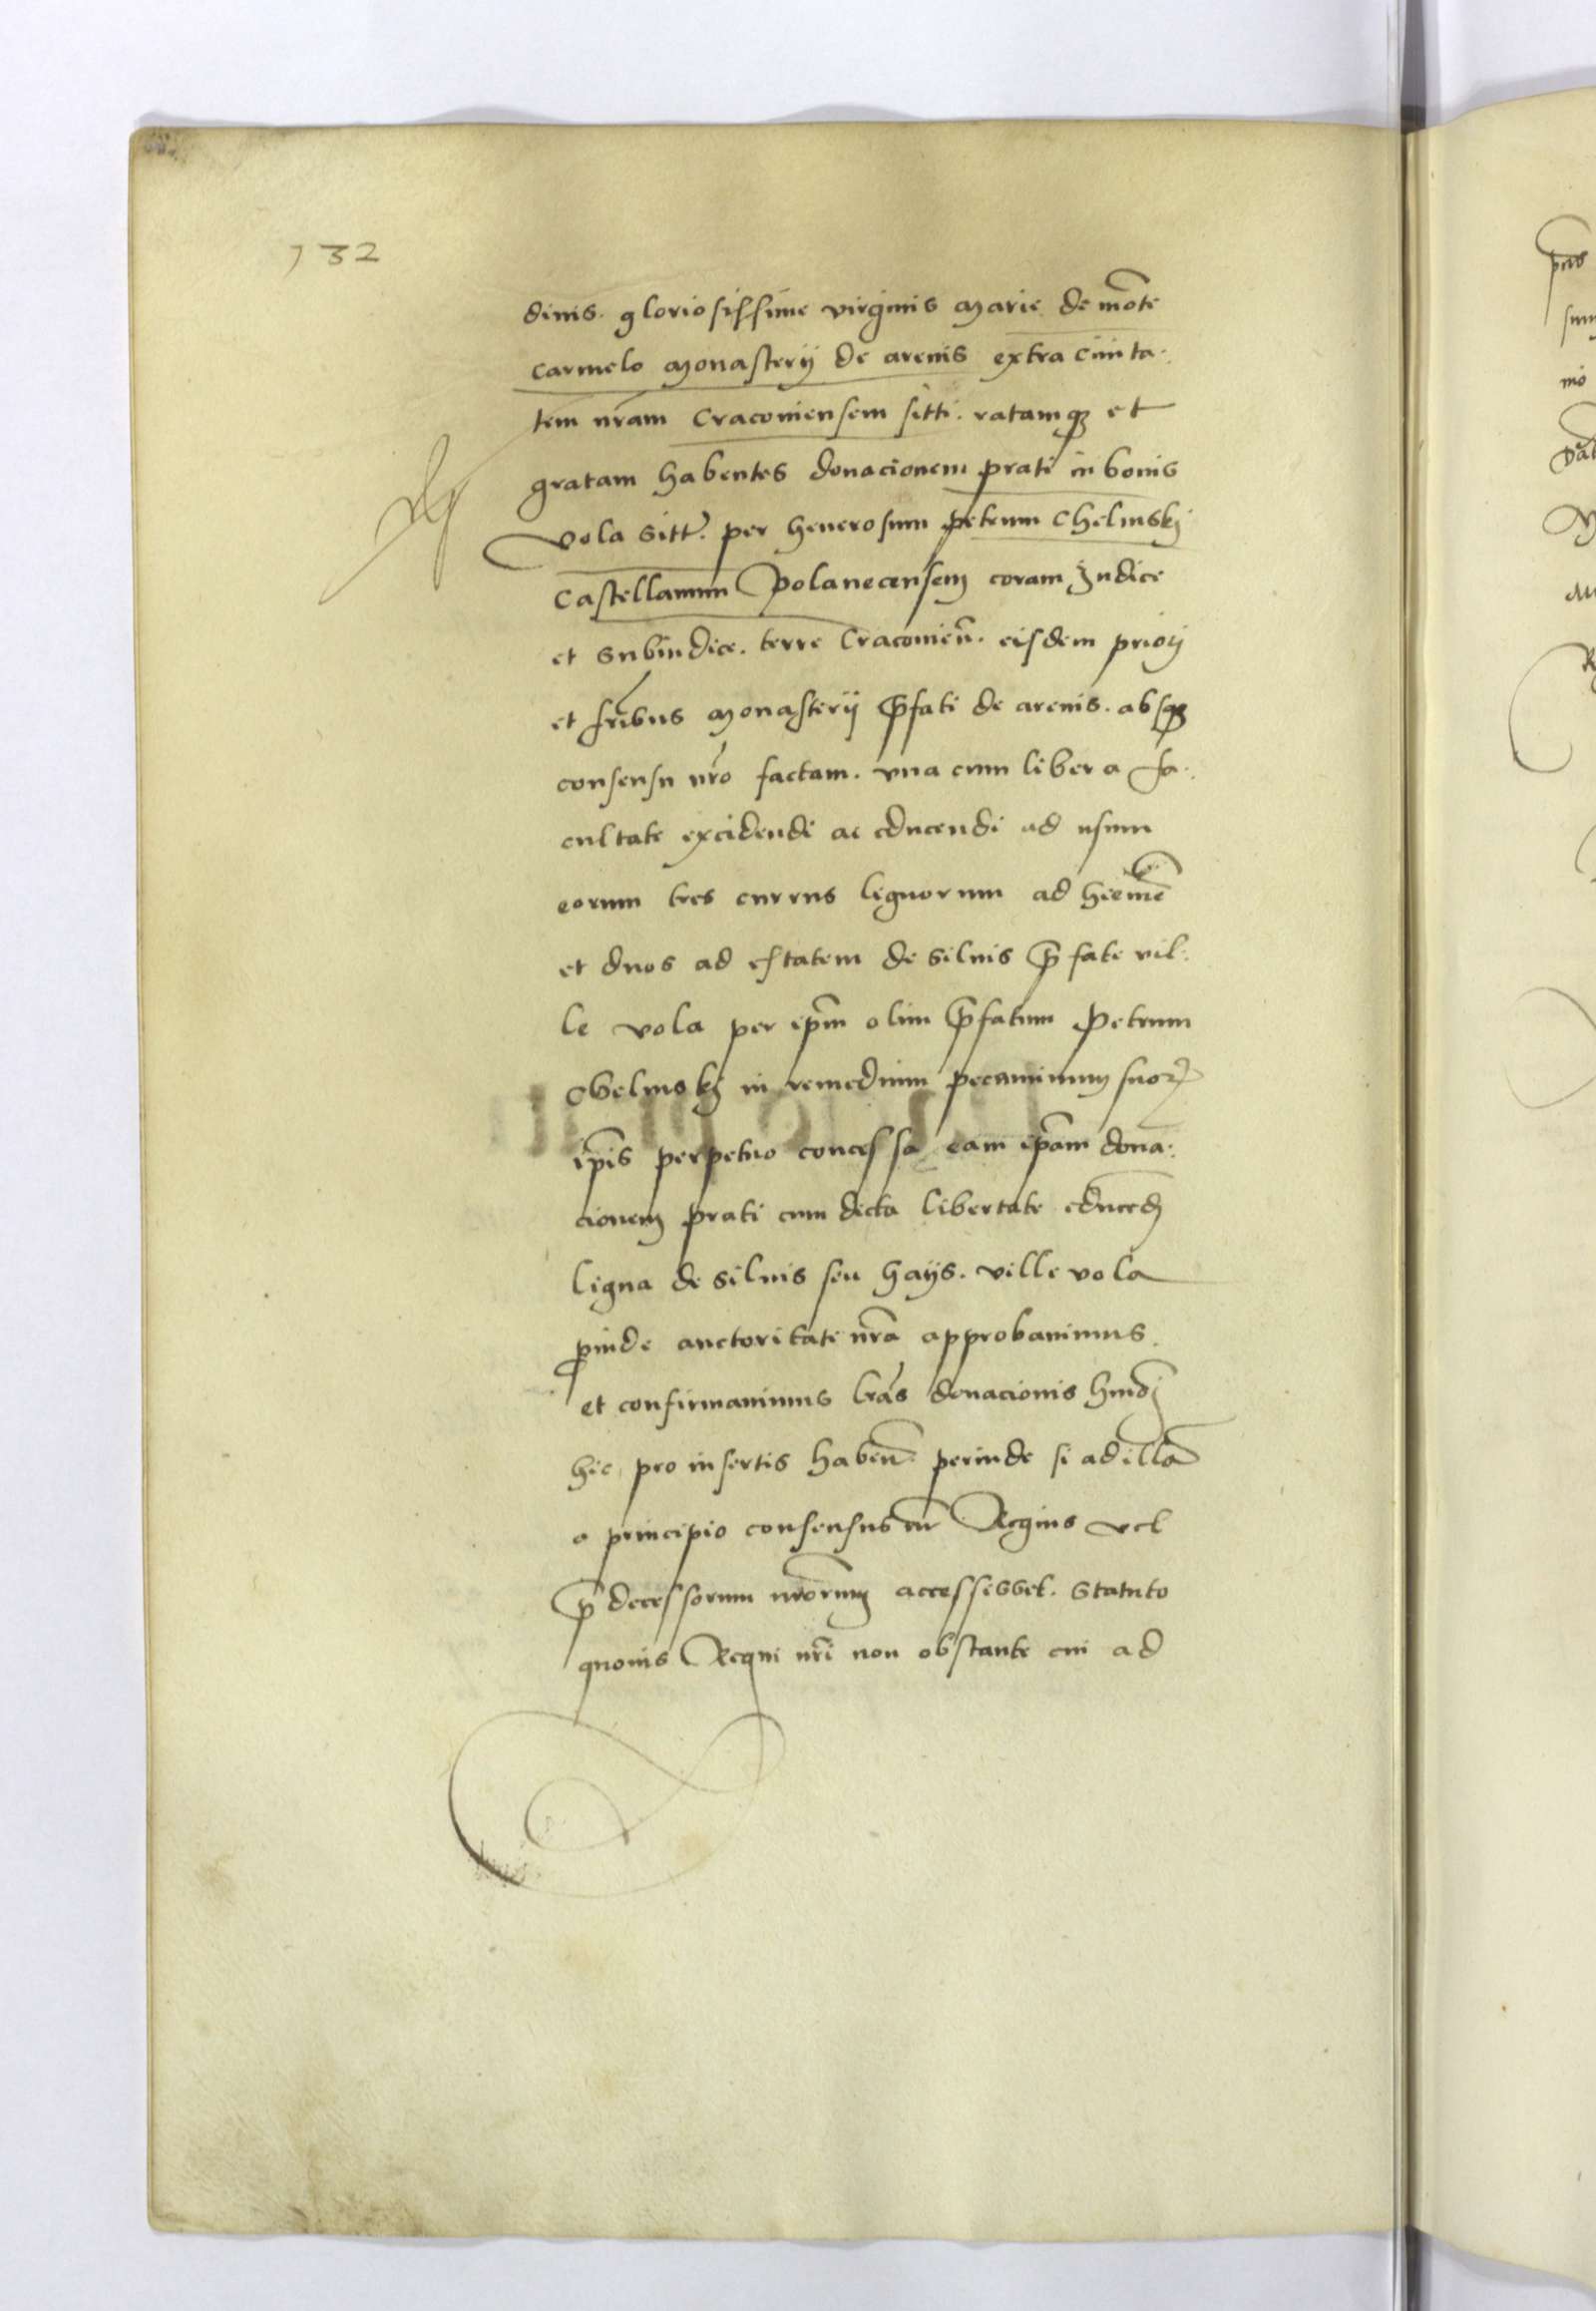 132
dinis. gloriosissime virginis Marie de mõte
Carmelo Monasterij de arenis extra Ciuita-
tem nr̃am Cracouiensem sitti. ratamq3 et
gratam habentes donacionem prati in bonis
vola sitt. per Generosum petrum Chelmskj
Castellanum Polanecensem coram Judice
et Subiudice. terre Cracouieñ. eisdem priorj
et fr̃ibus Monasterij p̃fati de arenis. absq3
consensu nr̃o factam. vna cum libera fa-
cultate excidendi ac educendi ad usum
eorum tres currus lignorum ad hiemẽ
et duos ad estatem de siluis p̃fate vil-
le vola per ip̃m olim p̃fatum Petrum
Chelmskj in remedium peccaminum suorꝝ
ip̃is perpetuo concessa eam ip̃am dona-
cionem prati cum dicta libertate educẽdj
ligna de siluis seu gays. ville vola
ꝓinde auctoritate nr̃a approbauimus
et confirmauimus lr̃as donacionis hmõj
hic pro insertis habeñ. perinde si ad illã
a principio consensus nr̃ Regius vel
p̃decessorum nr̃orum accessisset. Statuto
quouis Regni nr̃i non obstante cui ad